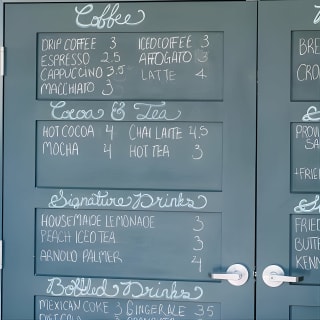 Coffee
DRIP COFFEE 3 ICED COFFEE 3
ESPRESSO 2.5 AFFOGATO 3
CAPPUCCINO 3.5 LATTE 4
MACCHIATO 3
Cocoa & Tea
HOT COCOA 4 CHAI LATTE 4.5
MOCHA 4 HOT TEA 3
Signature Drinks
HOUSEMADE LEMONADE 3
PEACH ICED TEA 3
ARNOLD PALMER 4
Bottled Drinks
MEXICAN COKE 3 GINGER ALE 3.5
BRE
CRO
PROVI
SA
+FRIE
FRIED
BUTT
KENN